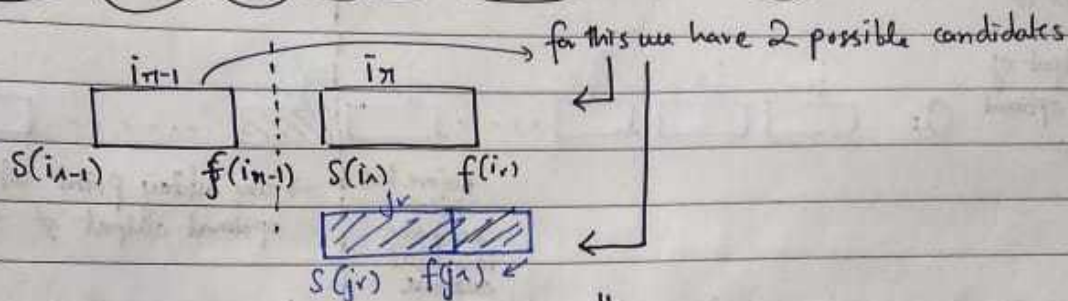 for this we have 2 possible candidates
i r-1 i r
S(i r-1) f(i r-1) S(i r) f(i r)
j r
S(j r) f(j r)